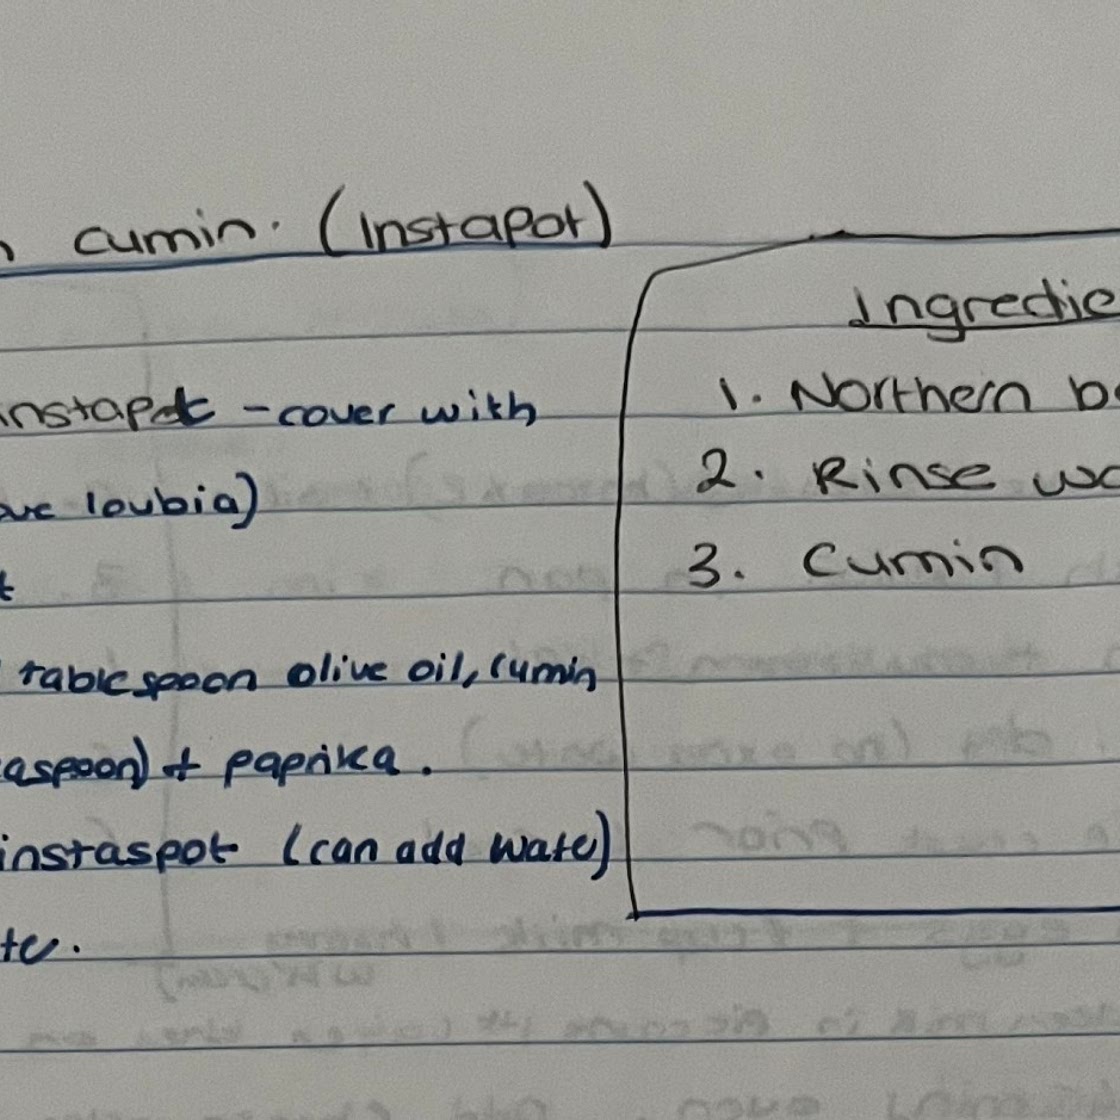 cumin. (Instapot)
instapot - cover with
loubia)
tablespoon olive oil, cumin
aspoon) + paprika.
instaspot (can add wate)
te.
Ingredie
1. Northern be
2. Rinse wa
3. Cumin